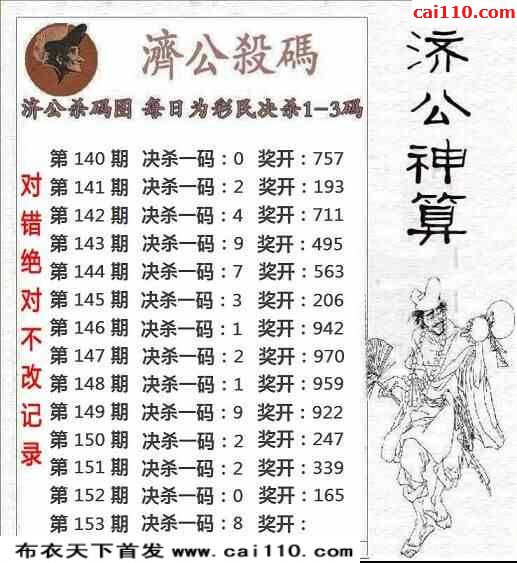 cai110.com
濟公殺碼
济公杀码图 每日为彩民决杀1-3码
济公神算
对错绝对不改记录
第 140 期 决杀一码：0 奖开：757
第 141 期 决杀一码：2 奖开：193
第 142 期 决杀一码：4 奖开：711
第 143 期 决杀一码：9 奖开：495
第 144 期 决杀一码：7 奖开：563
第 145 期 决杀一码：3 奖开：206
第 146 期 决杀一码：1 奖开：942
第 147 期 决杀一码：2 奖开：970
第 148 期 决杀一码：1 奖开：959
第 149 期 决杀一码：9 奖开：922
第 150 期 决杀一码：2 奖开：247
第 151 期 决杀一码：2 奖开：339
第 152 期 决杀一码：0 奖开：165
第 153 期 决杀一码：8 奖开：
布衣天下首发 www.cai110.com